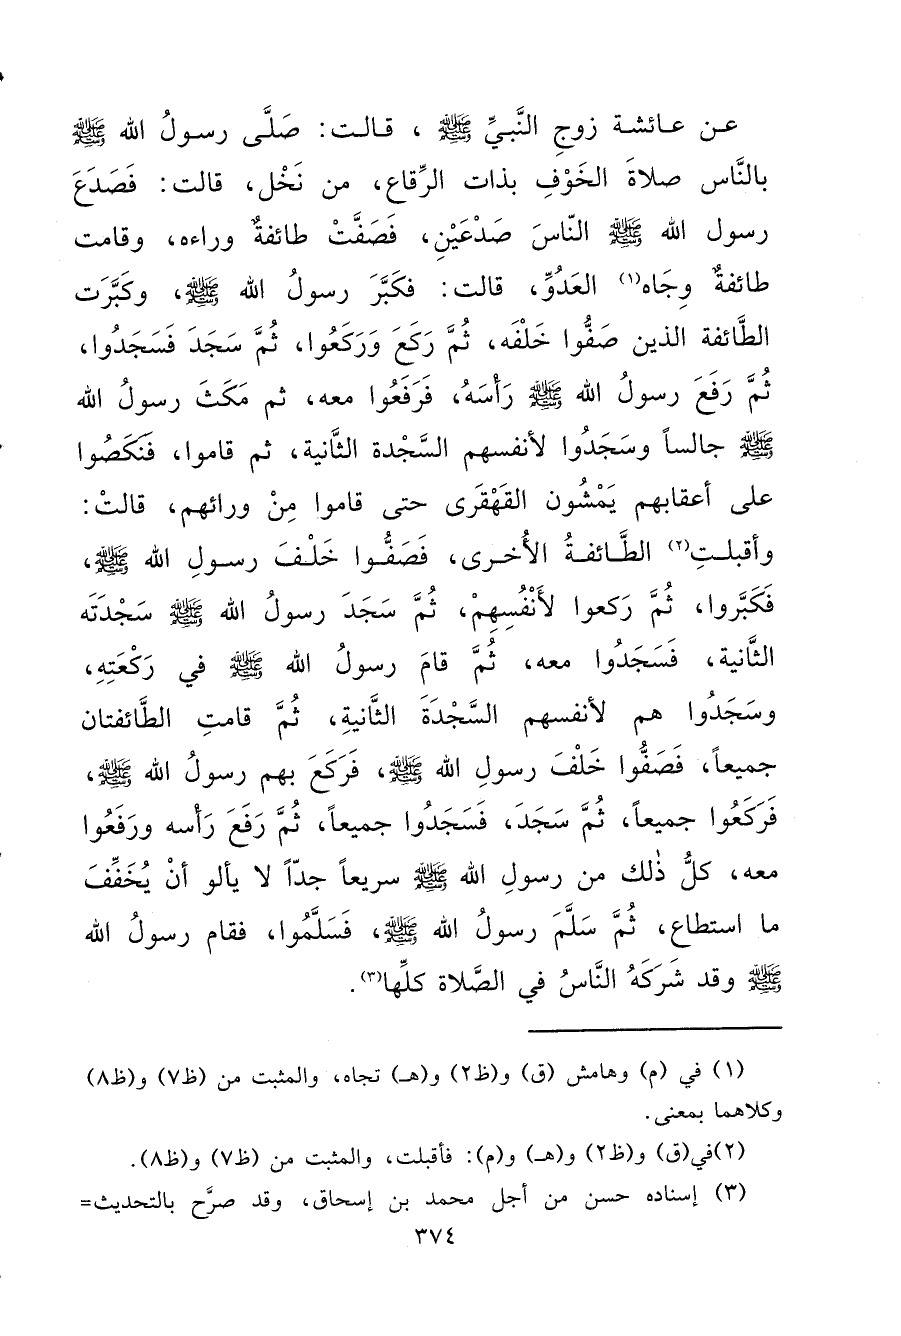 عن عائشة زوجِ النَّبيِّ ﷺ ، قالت: صَلَّى رسولُ الله ﷺ
بالنَّاس صلاةَ الخَوْفِ بذات الرِّقاع، من نَخْل، قالت: فَصَدَعَ
رسول الله ﷺ النّاسَ صَدْعَيْنِ، فَصَفَّتْ طائفةٌ وراءه، وقامت
طائفةٌ وِجَاه(١) العَدُوِّ، قالت: فكبَّرَ رسولُ الله ﷺ، وكبَّرَت
الطَّائفة الذين صَفُّوا خَلْفَه، ثُمَّ رَكَعَ وَرَكَعُوا، ثُمَّ سَجَدَ فَسَجَدُوا،
ثُمَّ رَفَعَ رسولُ الله ﷺ رَأْسَهُ، فَرَفَعُوا معه، ثم مَكَثَ رسولُ الله
ﷺ جالساً وسَجَدُوا لأنفسهم السَّجْدة الثَّانية، ثم قاموا، فَنَكَصُوا
على أعقابهم يَمْشُون القَهْقَرى حتى قاموا مِنْ ورائهم، قالتْ:
وأقبلتِ(٢) الطَّائفةُ الأُخرى، فَصَفُّوا خَلْفَ رسولِ الله ﷺ،
فَكَبَّروا، ثُمَّ رَكعوا لأَنْفُسِهِمْ، ثُمَّ سَجَدَ رسولُ الله ﷺ سَجْدَتَه
الثَّانية، فَسَجَدُوا معه، ثُمَّ قامَ رسولُ الله ﷺ في رَكْعَتِهِ،
وسَجَدُوا هم لأنفسهم السَّجْدَةَ الثَّانيةِ، ثُمَّ قامتِ الطَّائفتان
جميعاً، فَصَفُّوا خَلْفَ رسولِ الله ﷺ، فَرَكَعَ بهم رسولُ الله ﷺ،
فَرَكَعُوا جميعاً، ثُمَّ سَجَدَ، فَسَجَدُوا جميعاً، ثُمَّ رَفَعَ رَأْسه ورَفَعُوا
معه، كلُّ ذٰلك من رسولِ الله ﷺ سريعاً جدّاً لا يألو أنْ يُخَفِّفَ
ما استطاع، ثُمَّ سَلَّمَ رسولُ الله ﷺ، فَسَلَّمُوا، فقام رسولُ الله
ﷺ وقد شَرَكَهُ النَّاسُ في الصَّلاة كلِّها(٣).
(١) في (م) وهامش (ق) و(ظ٢) و(هـ) تجاه، والمثبت من (ظ٧) و(ظ٨)
وكلاهما بمعنى.
(٢)في(ق) و(ظ٢) و(هـ) و(م): فأقبلت، والمثبت من (ظ٧) و(ظ٨).
(٣) إسناده حسن من أجل محمد بن إسحاق، وقد صرَّح بالتحديث=
٣٧٤